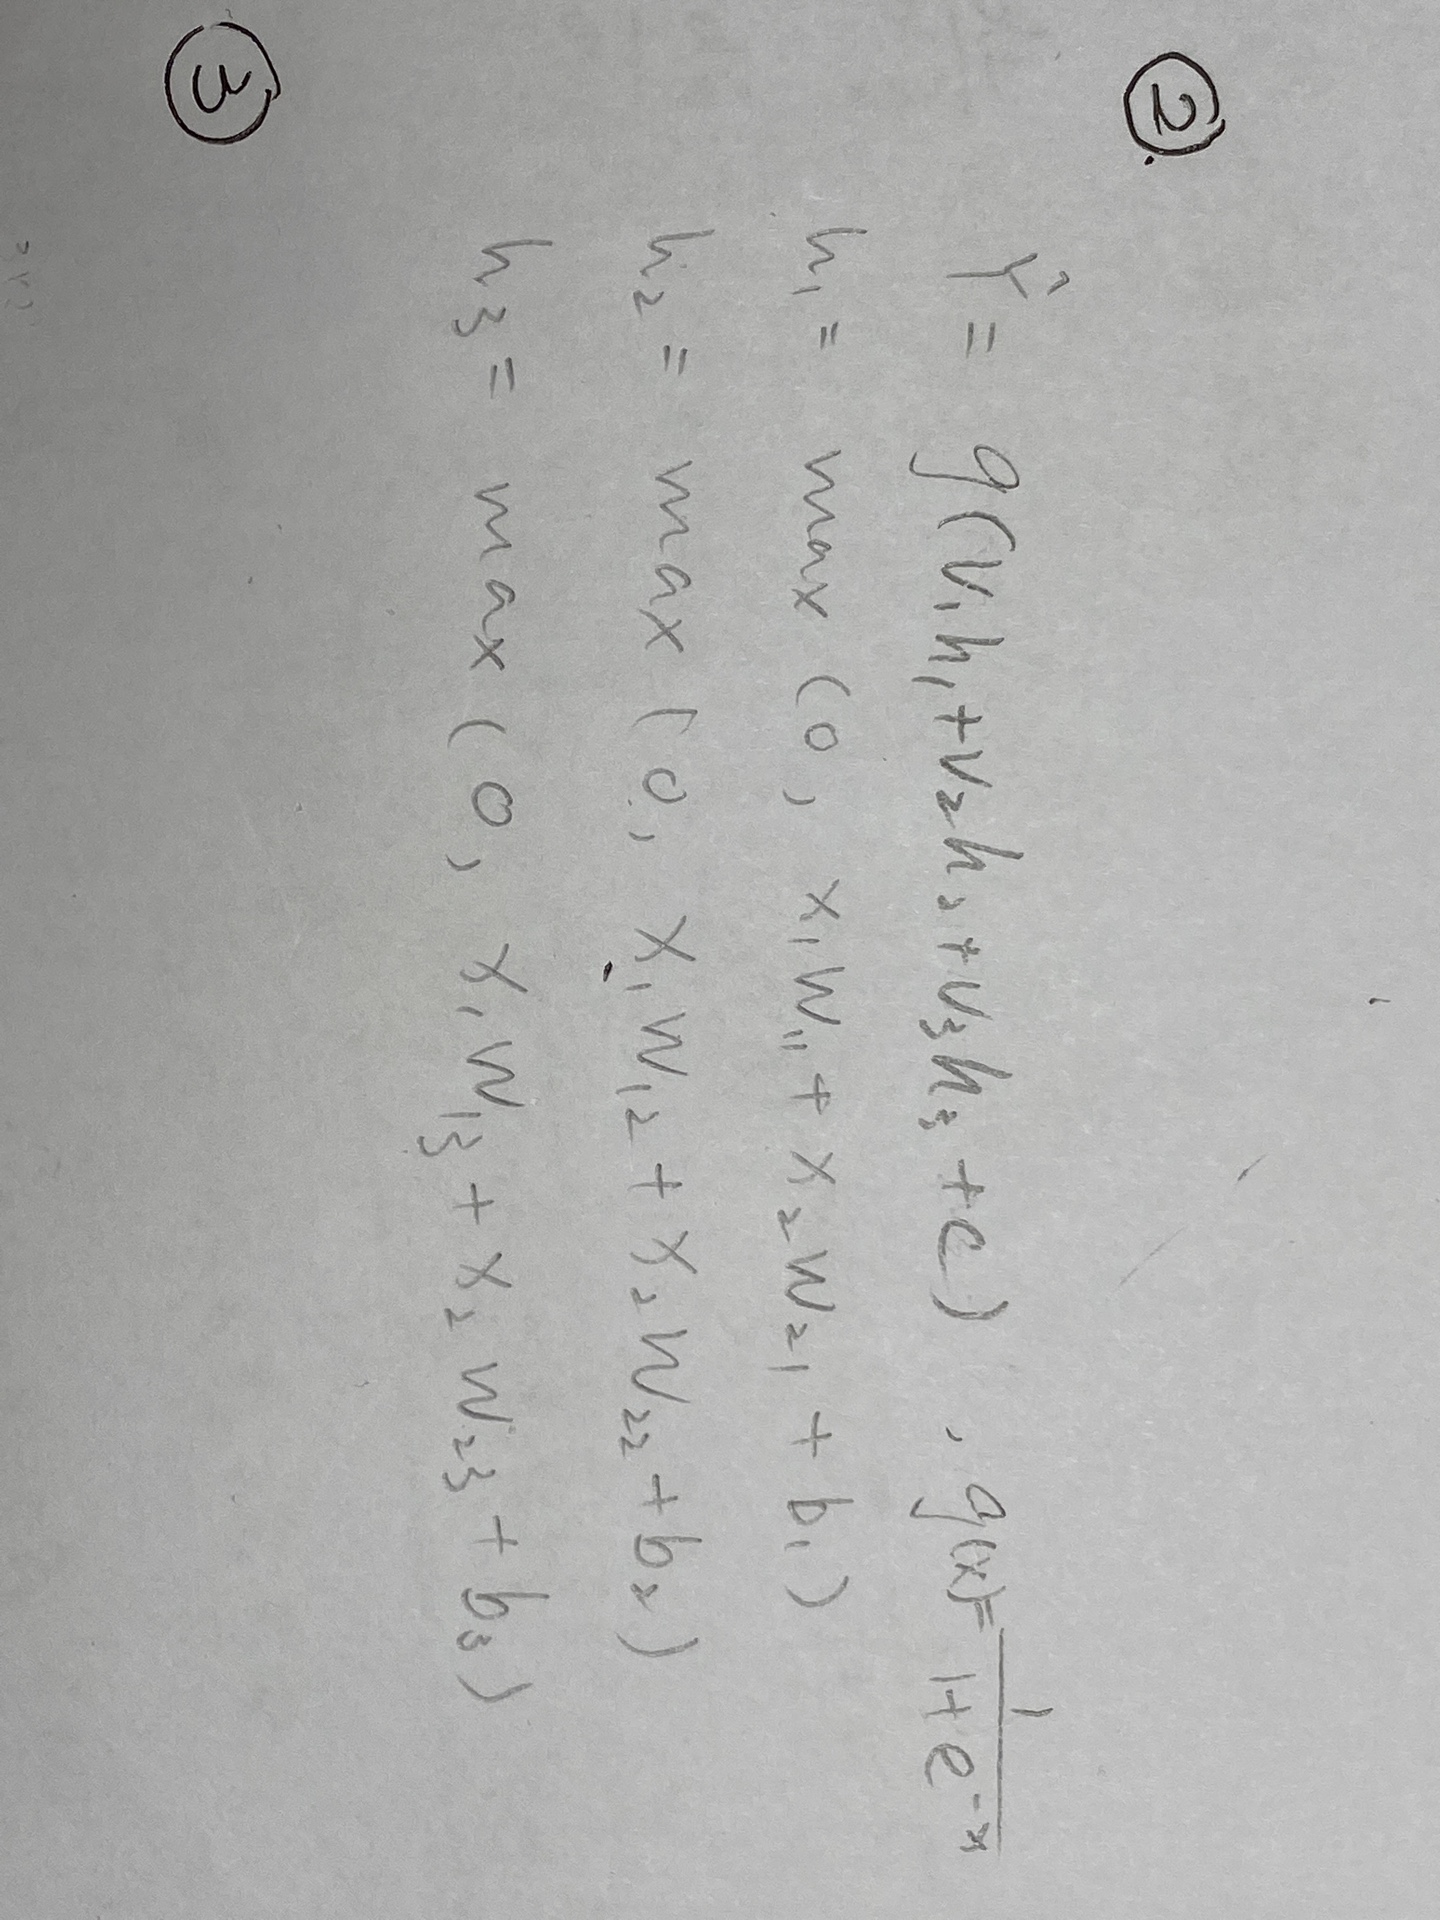 ②.
Ŷ = g(v₁h₁+v₂h₂+v₃h₃+c) , g(x)= 1/(1+e^-x)
h₁ = max (0, x₁W₁₁ + x₂W₂₁ + b₁)
h₂ = max (0, x₁W₁₂ + x₂W₂₂ + b₂)
h₃ = max (0, x₁W₁₃ + x₂W₂₃ + b₃)
③